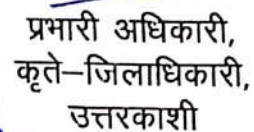 प्रभारी अधिकारी,
कृते–जिलाधिकारी,
उत्तरकाशी